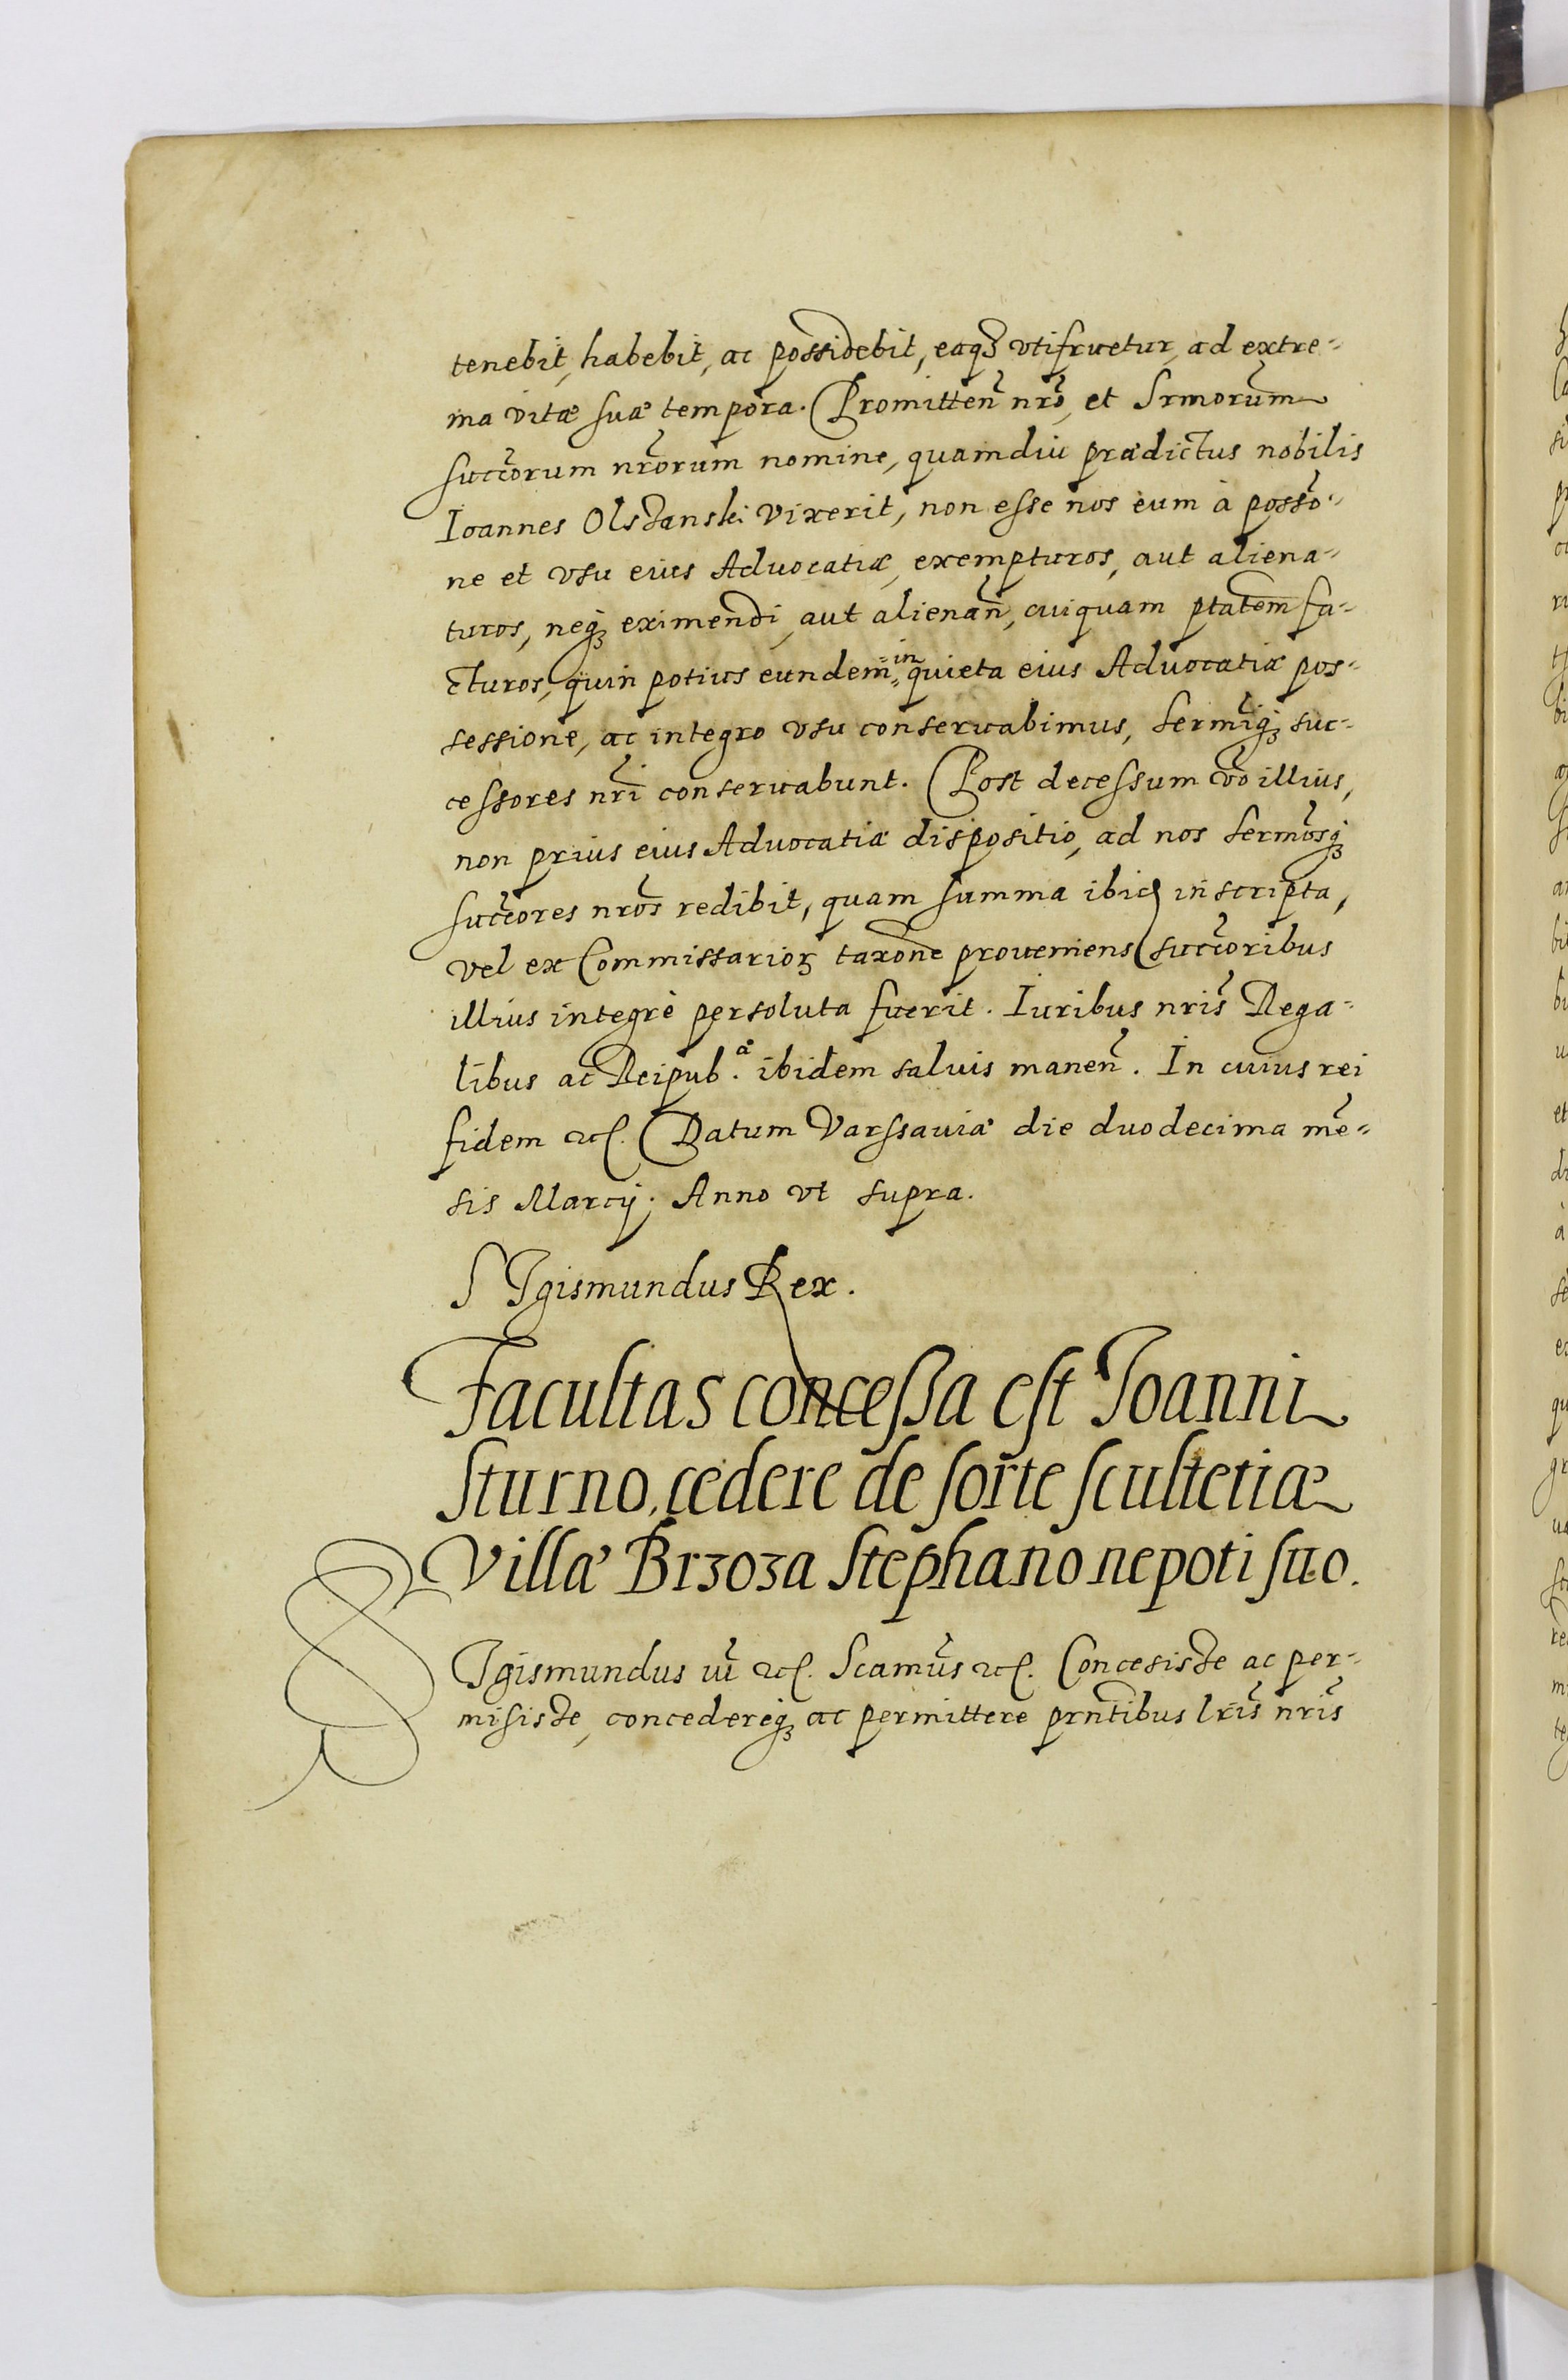 tenebit, habebit, ac possidebit, eaqȝ vtifruetur, ad extre-
ma vitæ suæ tempora. Promitten̄ nrō, et Srmorum̄
succōrum nrōrum nomine, quamdiu prædictus nobilis
Ioannes Olszanski vixerit, non esse nos eum à possō-
ne et vsu eius Aduocatiæ, exempturos, aut aliena-
turos, neqȝ eximendi, aut alienan̄, cuiquam ptatem̄ fa-
cturos, quin potius eundem in quieta eius Aduocatiæ pos-
sessione, ac integro vsu conseruabimus, Sermīqȝ suc-
cessores nrī conseruabunt. Post decessum vō illius,
non prius eius Aduocatiæ dispositio, ad nos Sermōsqȝ
succōres nrōs redibit, quam summa ibid inscripta,
vel ex Commissarioꝝ taxōne proueniens succōribus
illius integrè persoluta fuerit. Iuribus nrīs Rega-
libus ac Reipub.æ ibidem saluis manen̄. In cuius rei
fidem ꝛc. Datum Varssauiæ die duodecima mē-
sis Marcij. Anno vt supra.
SIgismundus Rex.
Facultas conceßa est Ioanni
Sturno, cedere de sorte scultetiæ
Villæ Brzoza Stephano nepoti suo.
SIgismundus iii ꝛc. Scamūs ꝛc. Concesisse ac per-
misisse, concedereqȝ ac permittere prn̄tibus lrīs nrīs